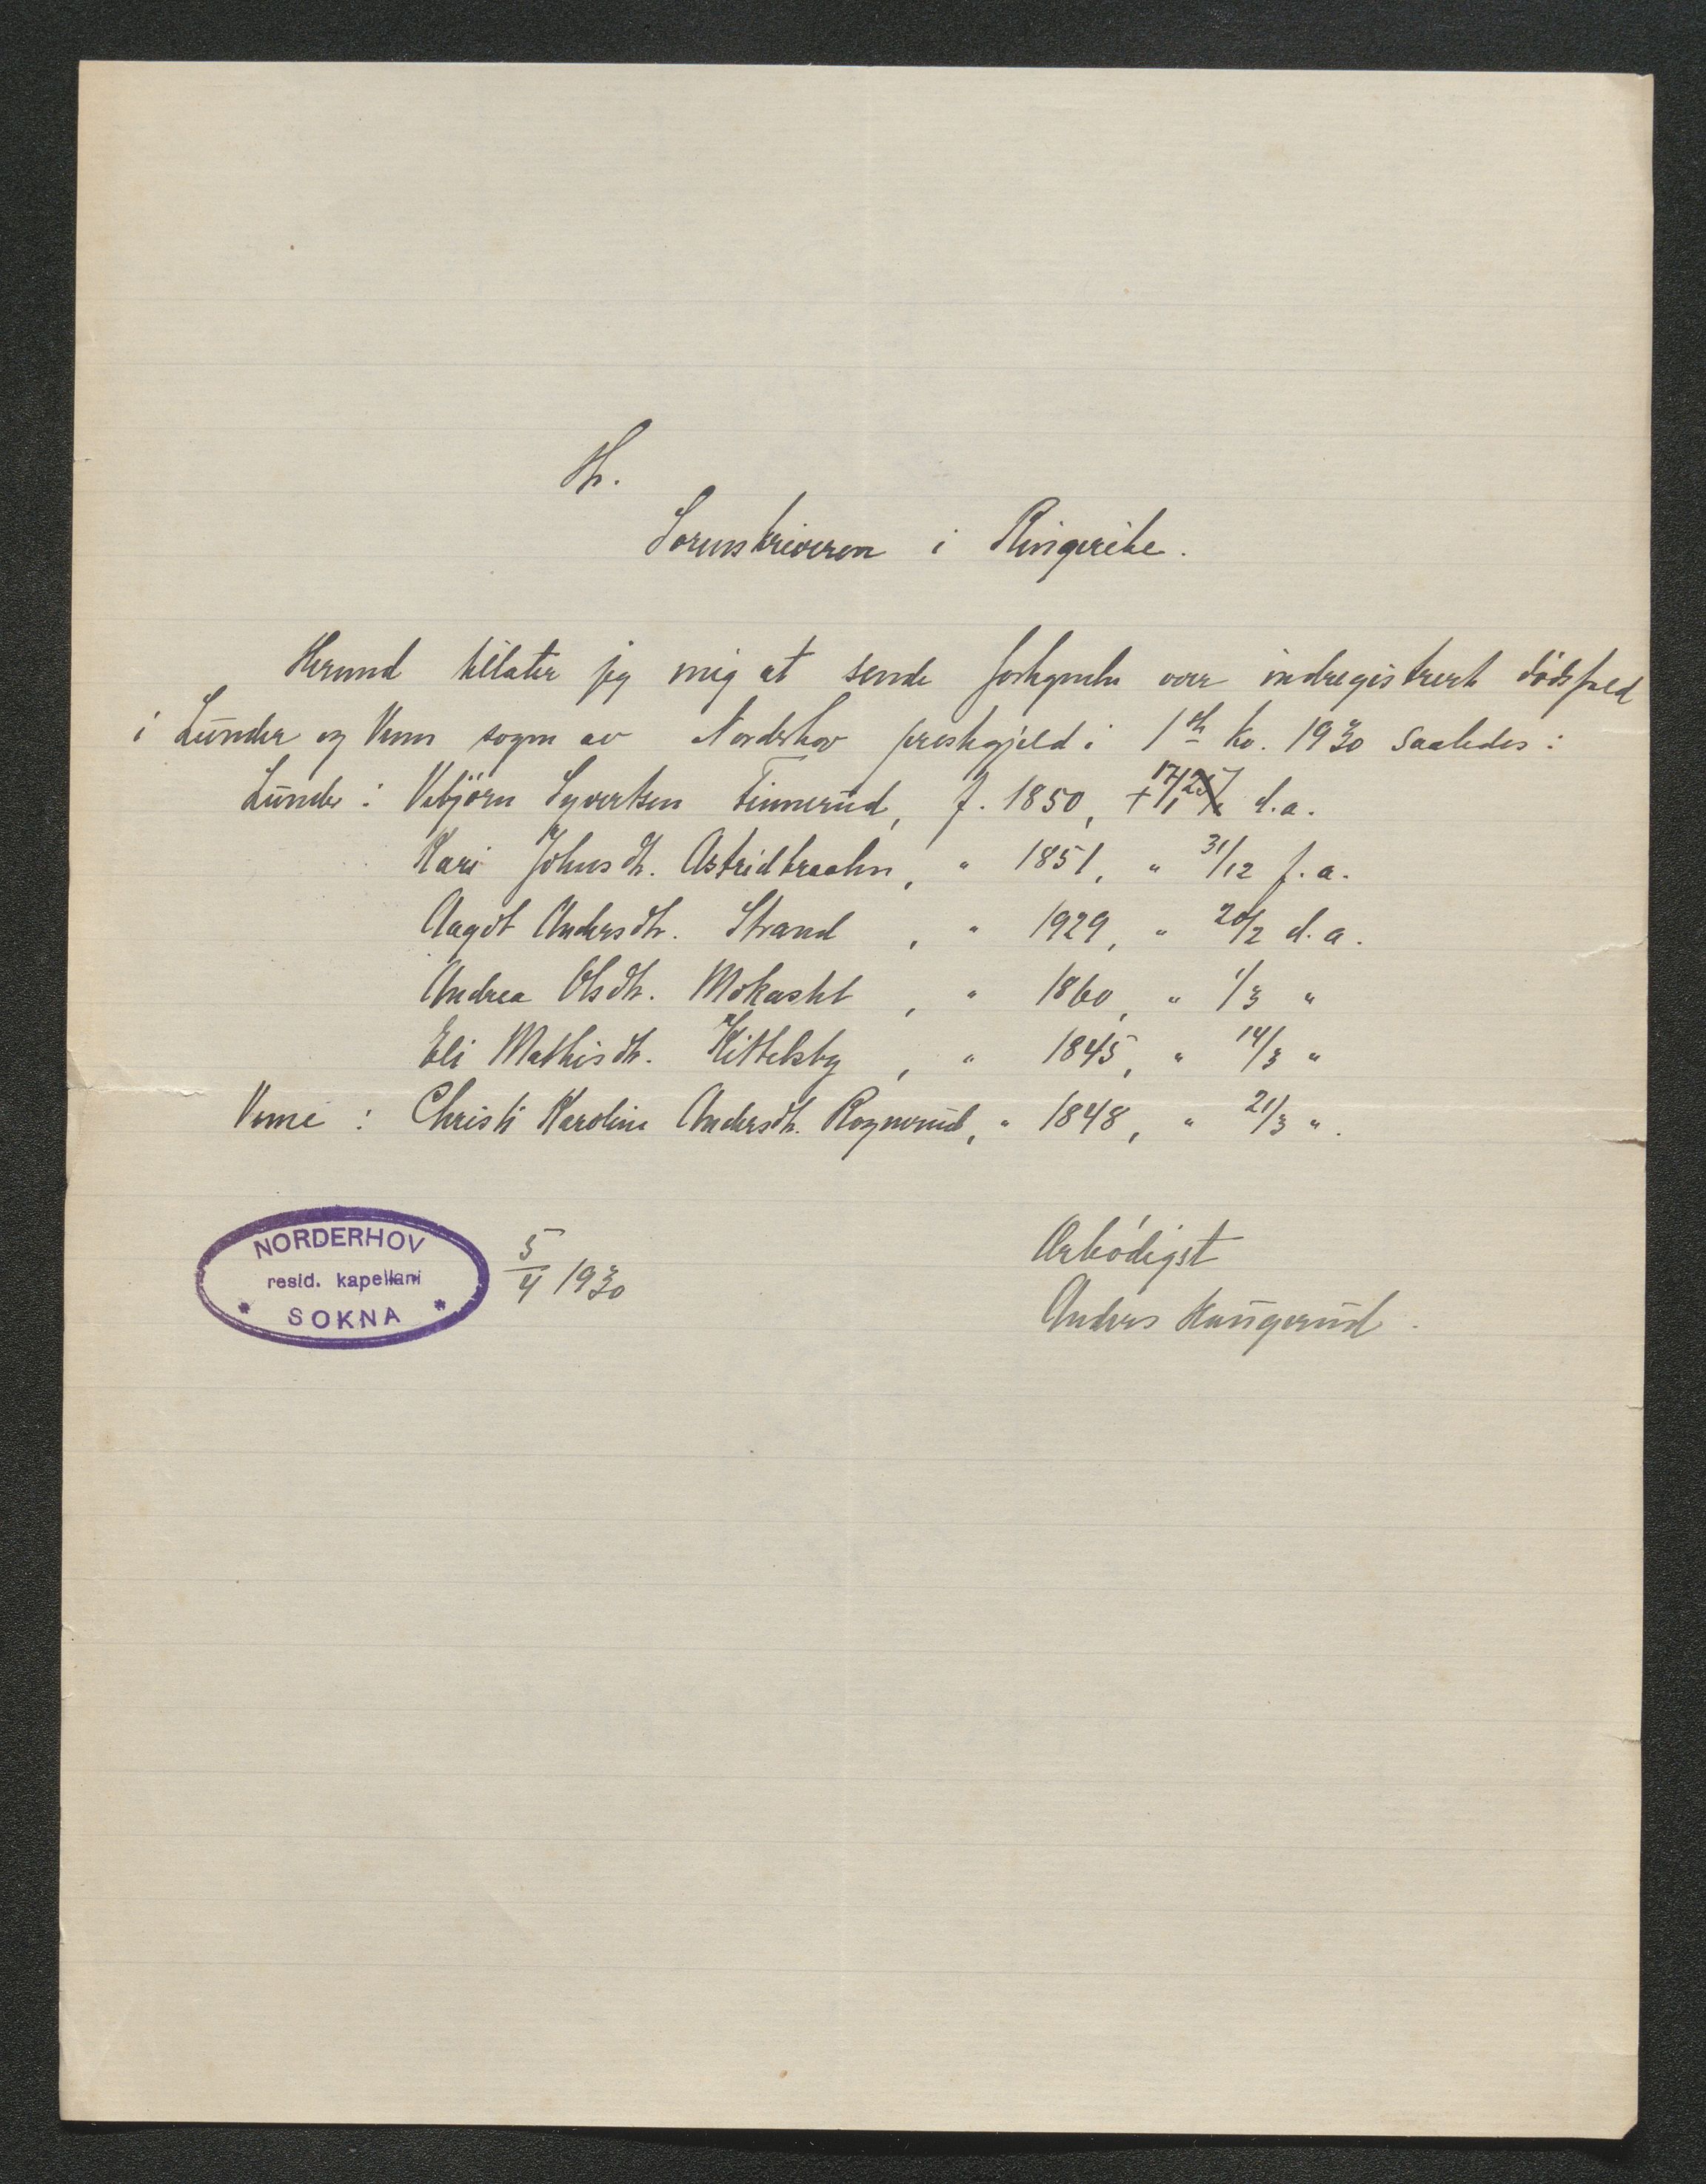 Hr.
Sorenskriveren i Ringerike.
Hermed tillater jeg mig at sende fortegnelse over indregistrerte dødsfald
i Lunder og Veme sogn av Norderhov prestegjeld i 1ste kv. 1930 saaledes:
Lunder: Vebjørn Syvertsen Finnerud, f. 1850, + 17/1 d.a.
Kari Johnsdtr. Astridbraaten, " 1851, " 31/12 f.a.
Aagot Andersdtr. Strand, " 1929, " 20/2 d.a.
Andrea Olsdtr. Mokastet, " 1860, " 1/3 "
Eli Mathisdtr. Kittelsby, " 1845, " 14/3 "
Veme: Christi Karoline Andersdtr. Rognerud, " 1848, " 21/3 ".
NORDERHOV
resid. kapellani
* SOKNA *
5/4 1930
Ærbødigst
Anders Haugerud.